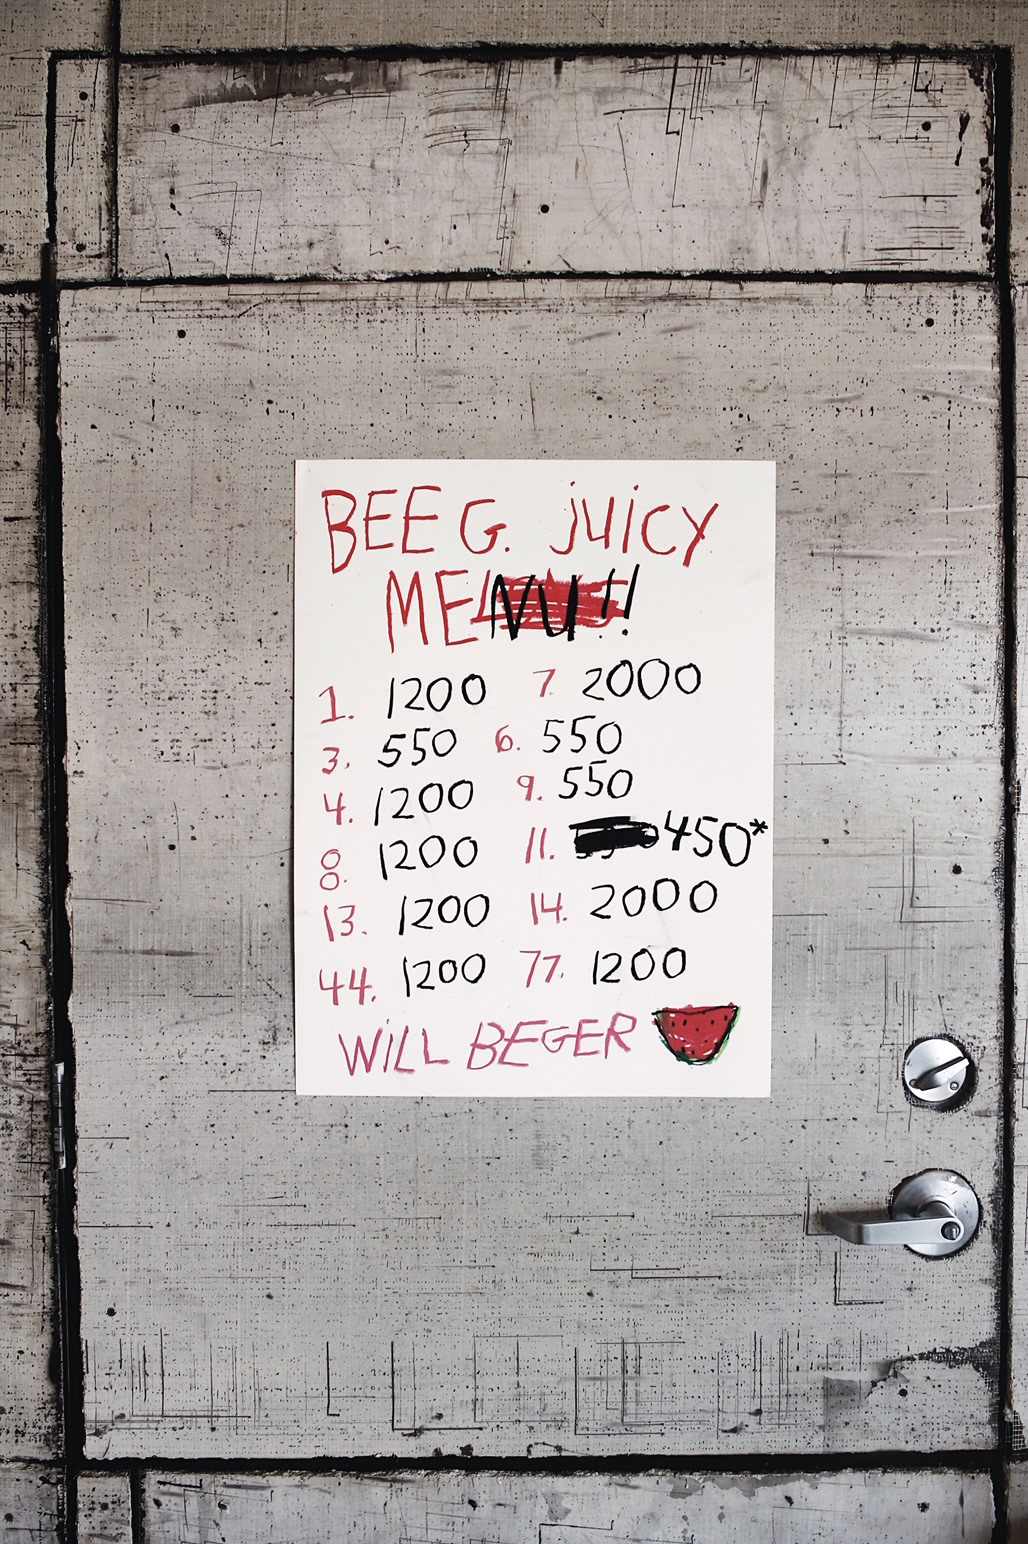 BEE G. JUICY
MENU!!
1. 1200 7. 2000
3. 550 6. 550
4. 1200 9. 550
8. 1200 11. 450*
13. 1200 14. 2000
44. 1200 77. 1200
WILL BEGER